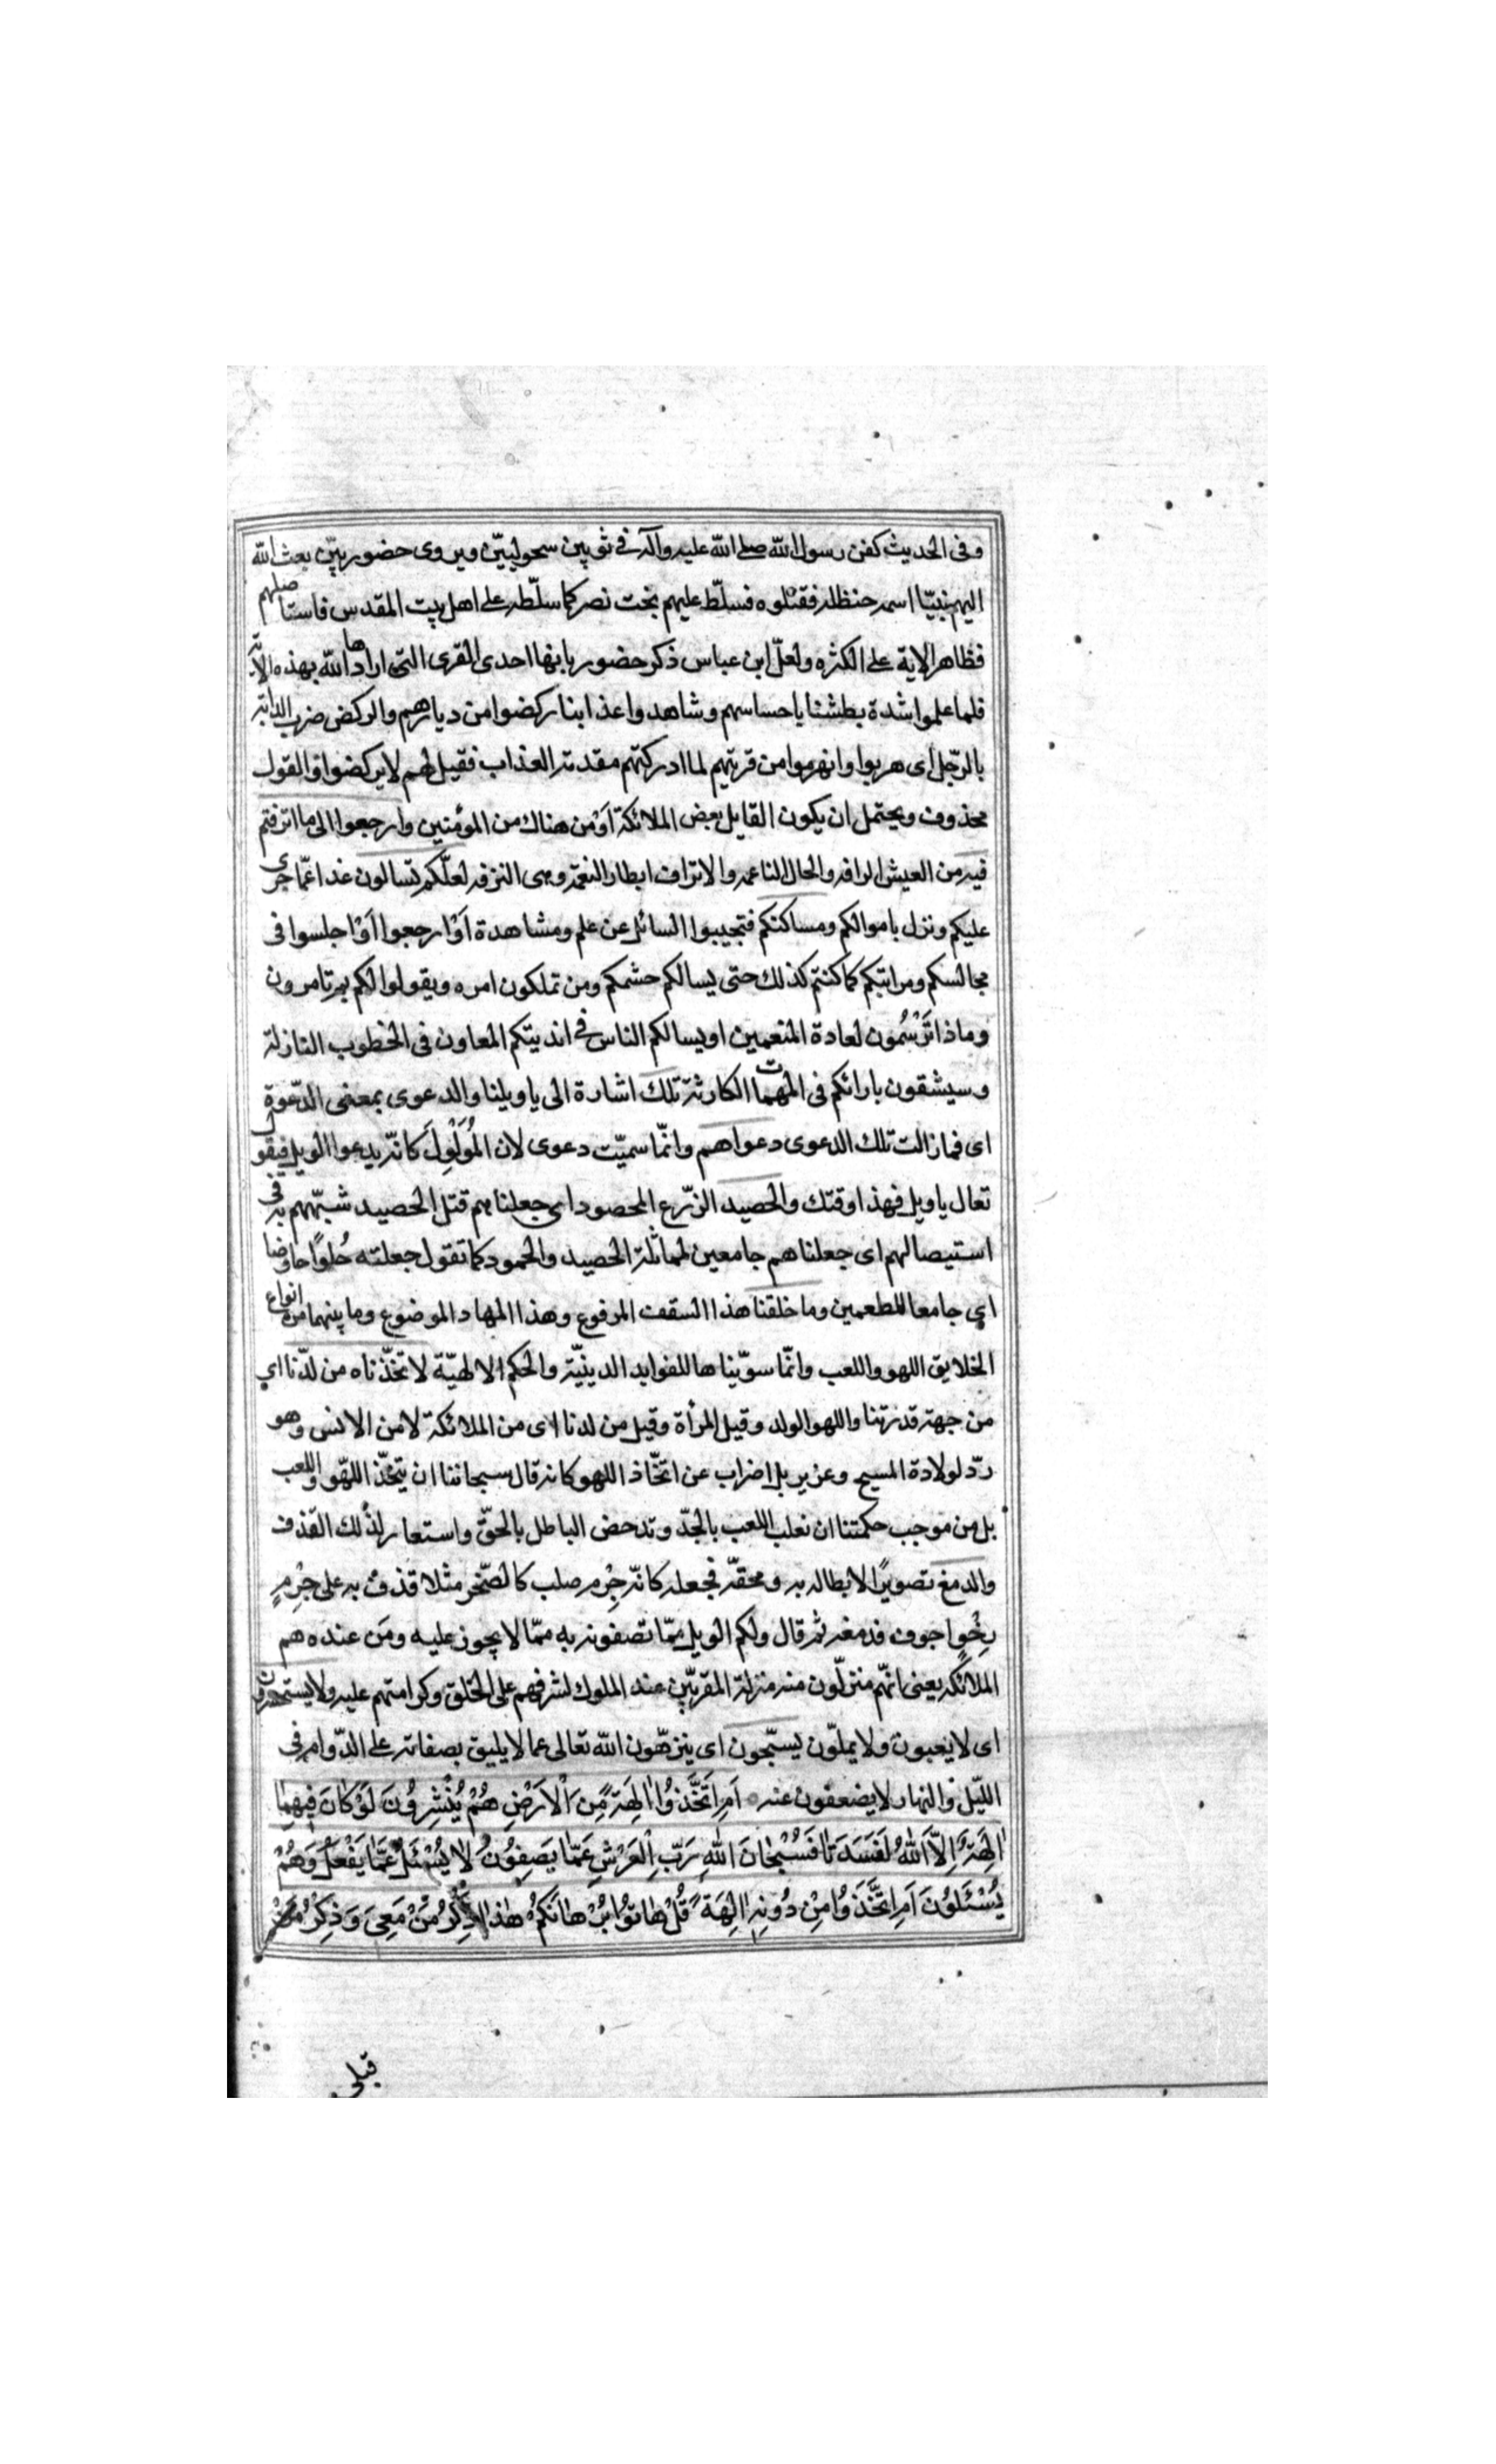 وفى الحديث كفن رسول الله صلى الله عليه وآله فى ثوبين سحوليين ويروى حضوريين بعث الله
اليهم نبيّا اسمه حنظله فقتلوه فسلّط عليهم بخت نصر كما سلّطه على اهل بيت المقدس فاستاصلهم
فظاهر الاية على الكثره ولعلّ ابن عباس ذكر حضور بانها احدى القرى التى ارادها الله بهذه الآية
فلما علموا شدة بطشنا باحساسهم وشاهدوا عذابنا ركضوا من ديارهم والركض ضرب الدابة
بالرّجل اى هربوا وانهزموا من قريتهم لما ادركتهم مقدمة العذاب فقيل لهم لا يركضوا والقول
محذوف ويحتمل ان يكون القايل بعض الملائكة اَوْ من هناك من المؤمنين وارجعوا الى ما اترفتم
فيه من العيش الرافه والحال الناعمه والاتراف ابطار النعمة وهى الترفه لعلّكم تسالون غدا عمّا جرى
عليكم ونزل باموالكم ومساكنكم فتجيبوا السائل عن علم ومشاهدة اَوْ ارجعوا اَوْ اجلسوا فى
مجالسكم ومراتبكم كما كنتم كذلك حتى يسالكم حشمكم ومن تملكون امره ويقولوا لكم بم تامرون
وماذا تَرْسُمون لعادة المنعمين او يسالكم الناس فى انديتكم المعاون فى الخطوب النازلة
وسيشقون بارائكم فى المهمات الكارثة تلك اشارة الى ياويلنا والدعوى بمعنى الدّعوة
اى فما زالت تلك الدعوى دعواهم وانّما سميّت دعوى لان المُوَلْوِلَ كانّه يدعوا الويل فيقول
تعال ياويل فهذا وقتك والحصيد الزّرع المحصود اى جعلناهم قتل الحصيد شبّههم به فى
استيصالهم اى جعلناهم جامعين لمماثلة الحصيد والخمود كما تقول جعلته حُلوًا حاوضا
اى جامعا للطعمين وما خلقنا هذا السقف المرفوع وهذا المهاد الموضوع وما بينهما من انواع
الخلايق اللهو واللعب وانّما سوّيناها للفوايد الدينيّة والحكم الالهيّة لاتخذّناه من لدّنا اى
من جهة قدرتنا واللهو الولد وقيل المرأة وقيل من لدنا اى من الملائكة لا من الانس وهو
ردّ لولادة المسيح وعزير بل اضراب عن اتّخاذ اللهو كانه قال سبحاننا ان يتخّذ اللهّو واللعب
بل من موجب حكمتنا ان نغلب اللعب بالجدّ وتدحض الباطل بالحقّ واستعار لذلك القذف
والدمغ تصويرًا لابطاله به ومحقّه فجعله كانّه جِرْم صلب كالصّخر مثلا قذف به على جِرْمٍ
رِخْوٍ اجوف فدمغه ثم قال ولكم الويل ممّا تصفونه به ممّا لا يجوز عليه ومَن عنده هم
الملائكه يعنى انهّم منزلّون منه منزلة المقربّين عند الملوك لشرفهم على الخلق وكرامتهم عليه ولا يستحسرون
اى لا يَعيون ولا يملّون يسبّحون اى ينزهّون الله تعالى عما لا يليق بصفاته على الدّوام فى
الليّل والنهار لا يضعفون عنه اَمِ اتَّخَذُوا الِهَةً مِنَ الْاَرْضِ هُمْ يُنْشِرُونَ لَوْ كانَ فيهِما
الِهَةٌ اِلاَّ اللهُ لَفَسَدَتا فَسُبْحانَ اللهِ رَبِّ الْعَرْشِ عَمّا يَصِفُونَ لا يُسْئَلُ عَمّا يَفْعَلُ وَهُمْ
يُسْئَلُونَ اَمِ اتَّخَذُوا مِنْ دُونِهِ الِهَةً قُلْ هاتُوا بُرْهانَكُمْ هذا ذِكْرُ مَنْ مَعِىَ وَذِكْرُ مَنْ
قبلى